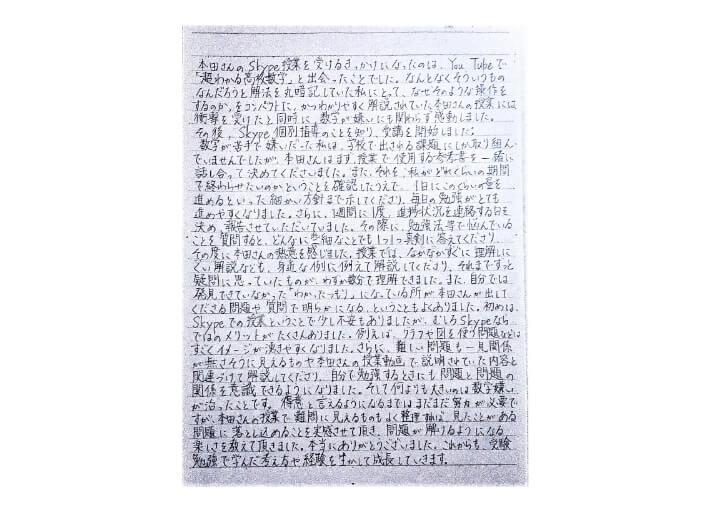 本田さんのSkype授業を受けるきっかけになったのは、YouTubeで
「超わかる高校数学」と出会ったことでした。なんとなくそういうもの
なんだろうと解法を丸暗記していた私にとって、なぜそのような操作を
するのか、をコンパクトに、かつわかりやすく解説されていた本田さんの授業には
衝撃を受けたと同時に、数学が嫌いにも関わらず感動しました。
その後、Skype個別指導のことを知り、受講を開始しました。
数学が苦手で嫌いだった私は、学校で出される課題にしか取り組ん
でいませんでしたが、本田さんはまず、授業で使用する参考書を一緒に
話し合って決めてくださいました。また、それを、私がどれくらいの期間
で終わらせたいのかということを確認したうえで、1日にこのぐらいの量を
進めるといった細かい方針まで示してくださり、毎日の勉強がとても
進めやすくなりました。さらに、1週間に1度、進捗状況を連絡する日を
決め、報告させていただいていました。その際に、勉強法等で悩んでいる
ことを質問すると、どんなに些細なことでも1つ1つ真剣に答えてくださり、
その度に本田さんの熱意を感じました。授業では、なかなかすぐに理解しに
くい解説なども、身近な例に例えて解説してくださり、それまでずっと
疑問に思っていたものが、わずか数分で理解できました。また、自分では
発見できていなかった"わかったつもり"になっている所が本田さんが出して
くださる問題や質問で明らかになる、ということもよくありました。初めは、
Skypeでの授業ということで少し不安もありましたが、むしろSkypeなら
ではのメリットがたくさんありました。例えば、グラフや図を使う問題などは
すごくイメージが湧きやすくなりました。さらに、難しい問題も一見関係
が無さそうに見えるものや本田さんの授業動画で説明されていた内容と
関連づけて解説してくださり、自分で勉強するときにも問題と問題の
関係を意識できるようになりました。そして何よりも大きいのは数学嫌い
が治ったことです。得意と言えるようになるまではまだまだ努力が必要で
すが、本田さんの授業で難問に見えるものもよく整理すれば、見たことがある
問題に落とし込めることを実感させて頂き、問題が解けるようになる
楽しさを教えて頂きました。本当にありがとうございました。これからも、受験
勉強で学んだ考え方や経験を生かして成長していきます。